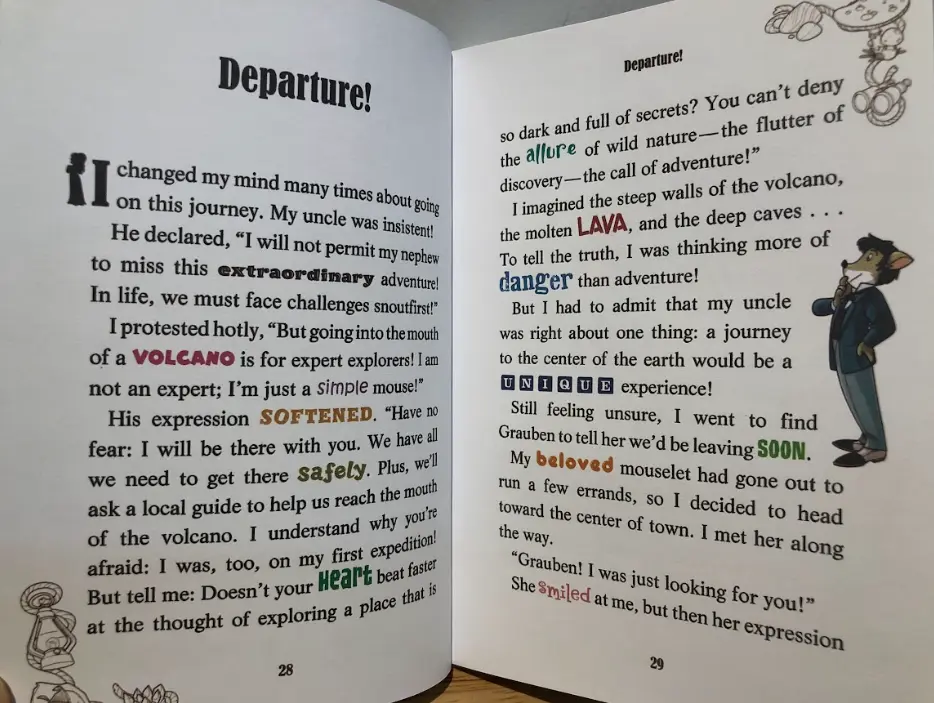 Departure!
I changed my mind many times about going
on this journey. My uncle was insistent!
He declared, “I will not permit my nephew
to miss this extraordinary adventure!
In life, we must face challenges snoutfirst!”
I protested hotly, “But going into the mouth
of a VOLCANO is for expert explorers! I am
not an expert; I’m just a simple mouse!”
His expression SOFTENED. “Have no
fear: I will be there with you. We have all
we need to get there safely. Plus, we’ll
ask a local guide to help us reach the mouth
of the volcano. I understand why you’re
afraid: I was, too, on my first expedition!
But tell me: Doesn’t your HEART beat faster
at the thought of exploring a place that is
28
Departure!
so dark and full of secrets? You can’t deny
the allure of wild nature—the flutter of
discovery—the call of adventure!”
I imagined the steep walls of the volcano,
the molten LAVA, and the deep caves . . .
To tell the truth, I was thinking more of
danger than adventure!
But I had to admit that my uncle
was right about one thing: a journey
to the center of the earth would be a
UNIQUE experience!
Still feeling unsure, I went to find
Grauben to tell her we’d be leaving SOON.
My beloved mouselet had gone out to
run a few errands, so I decided to head
toward the center of town. I met her along
the way.
“Grauben! I was just looking for you!”
She smiled at me, but then her expression
29